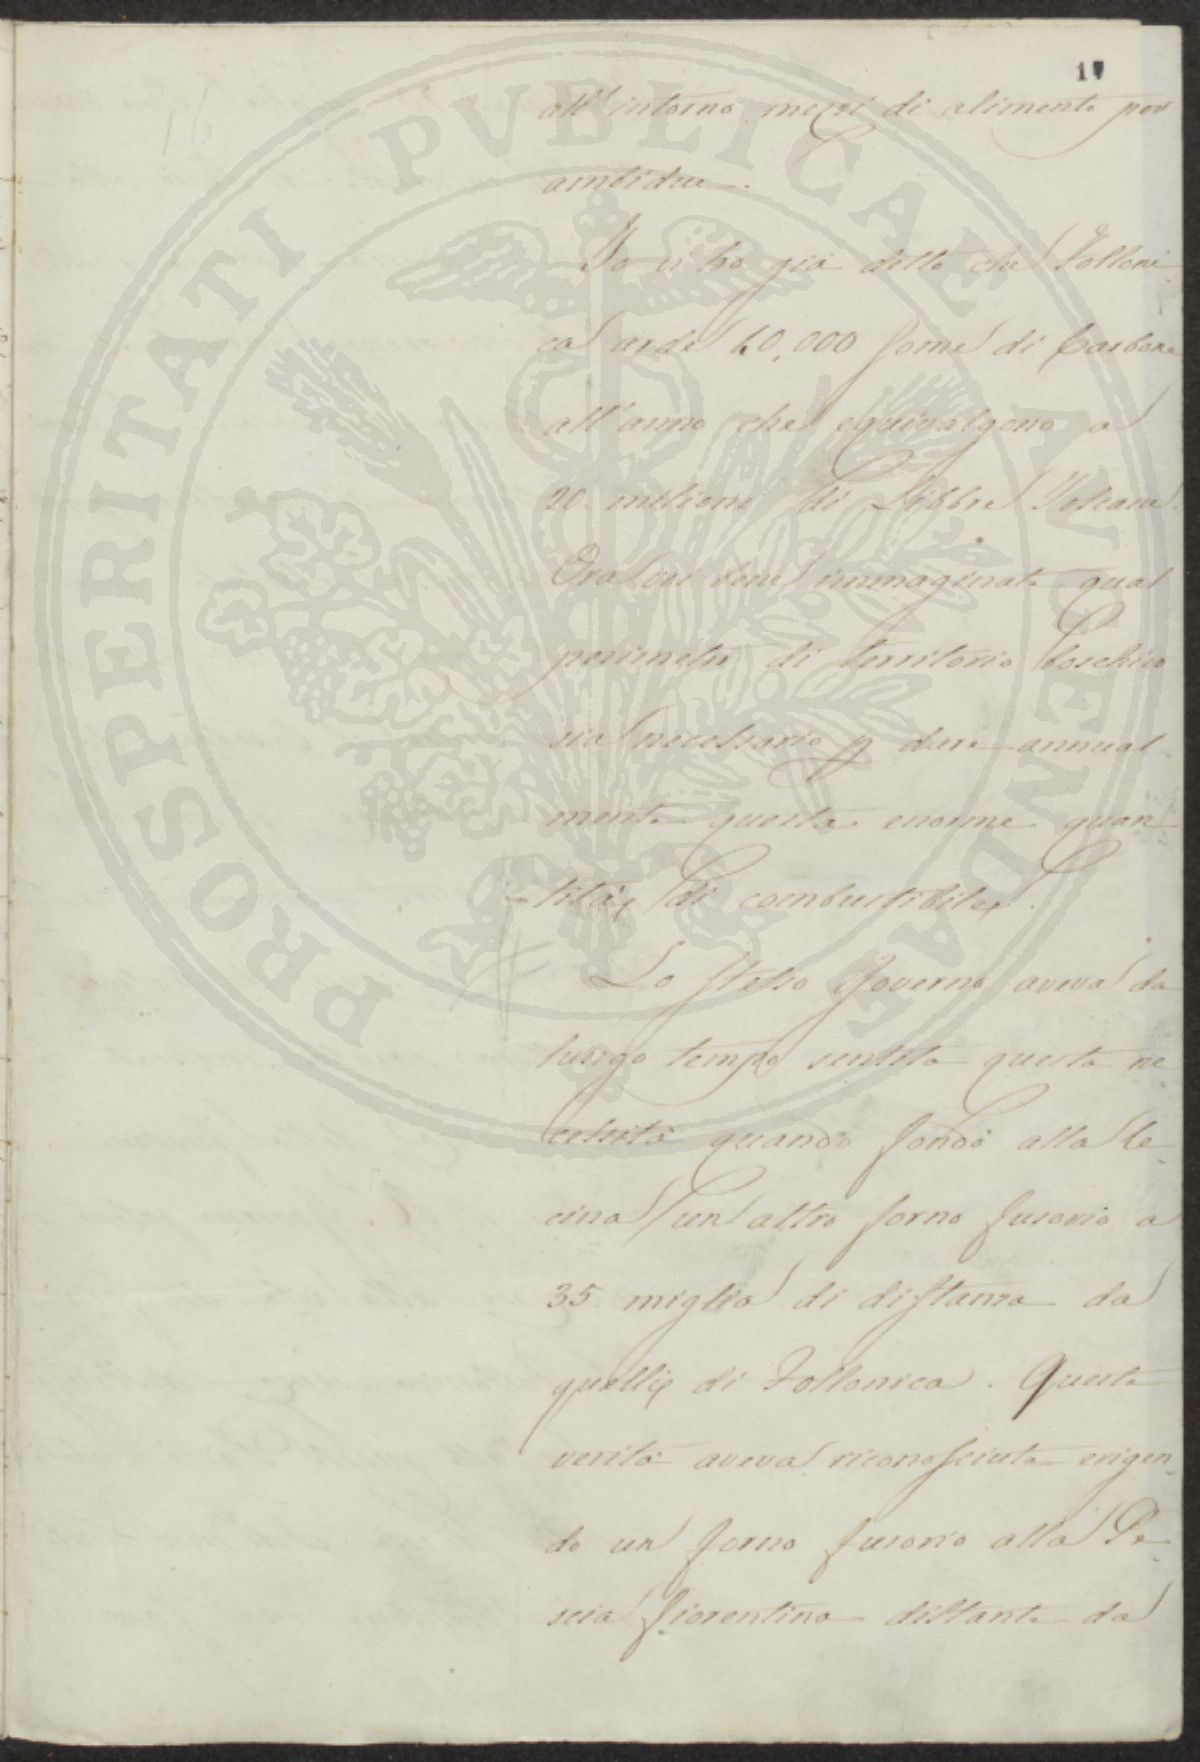 17
16
all'intorno mezzi di alimento per
ambidue.
Io vi ho già detto che Folloni
ca arde 40,000 some di Carbone
all'anno che equivalgono a
20 milioni di Libbre Toscane.
Ora voi bene immaginate qual
perimetro di territorio boschivo
sia necessario p dare annual-
mente questa enorme quan
tità di combustibile.
Lo stesso Governo aveva da
lungo tempo sentita questa ne
cessità quando fondò alla Ce-
cina un altro forno fusorio a
35 miglia di distanza da
quelli di Follonica. Questa
verità aveva riconosciuta erigen-
do un forno fusorio alla Pe-
scia fiorentina distante da
PROSPERITATI PUBLICAE AUGENDAE